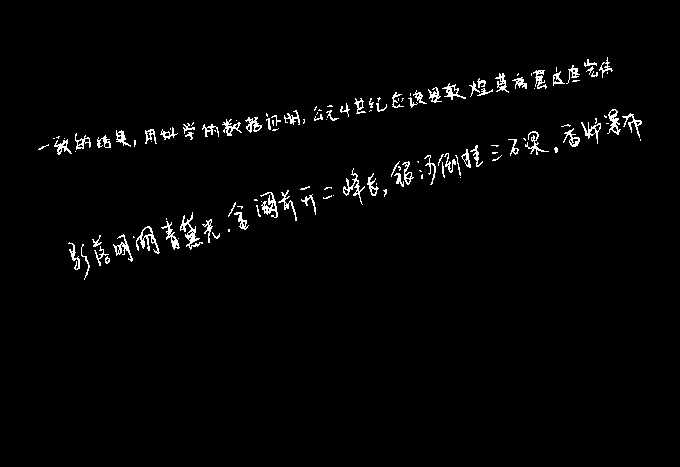 一致的结果,用科学的数据证明,公元4世纪应该是敦煌莫高窟这座宏伟
影落明湖青黛光.金阙前开二峰长,银河倒挂三石梁。香炉瀑布